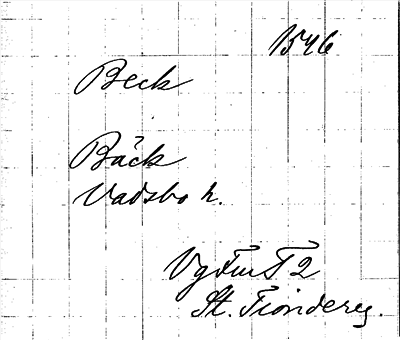 1546
Beck
Bäck
Vadsbo h.
Vg Fur T 2
St. Tiondereg.